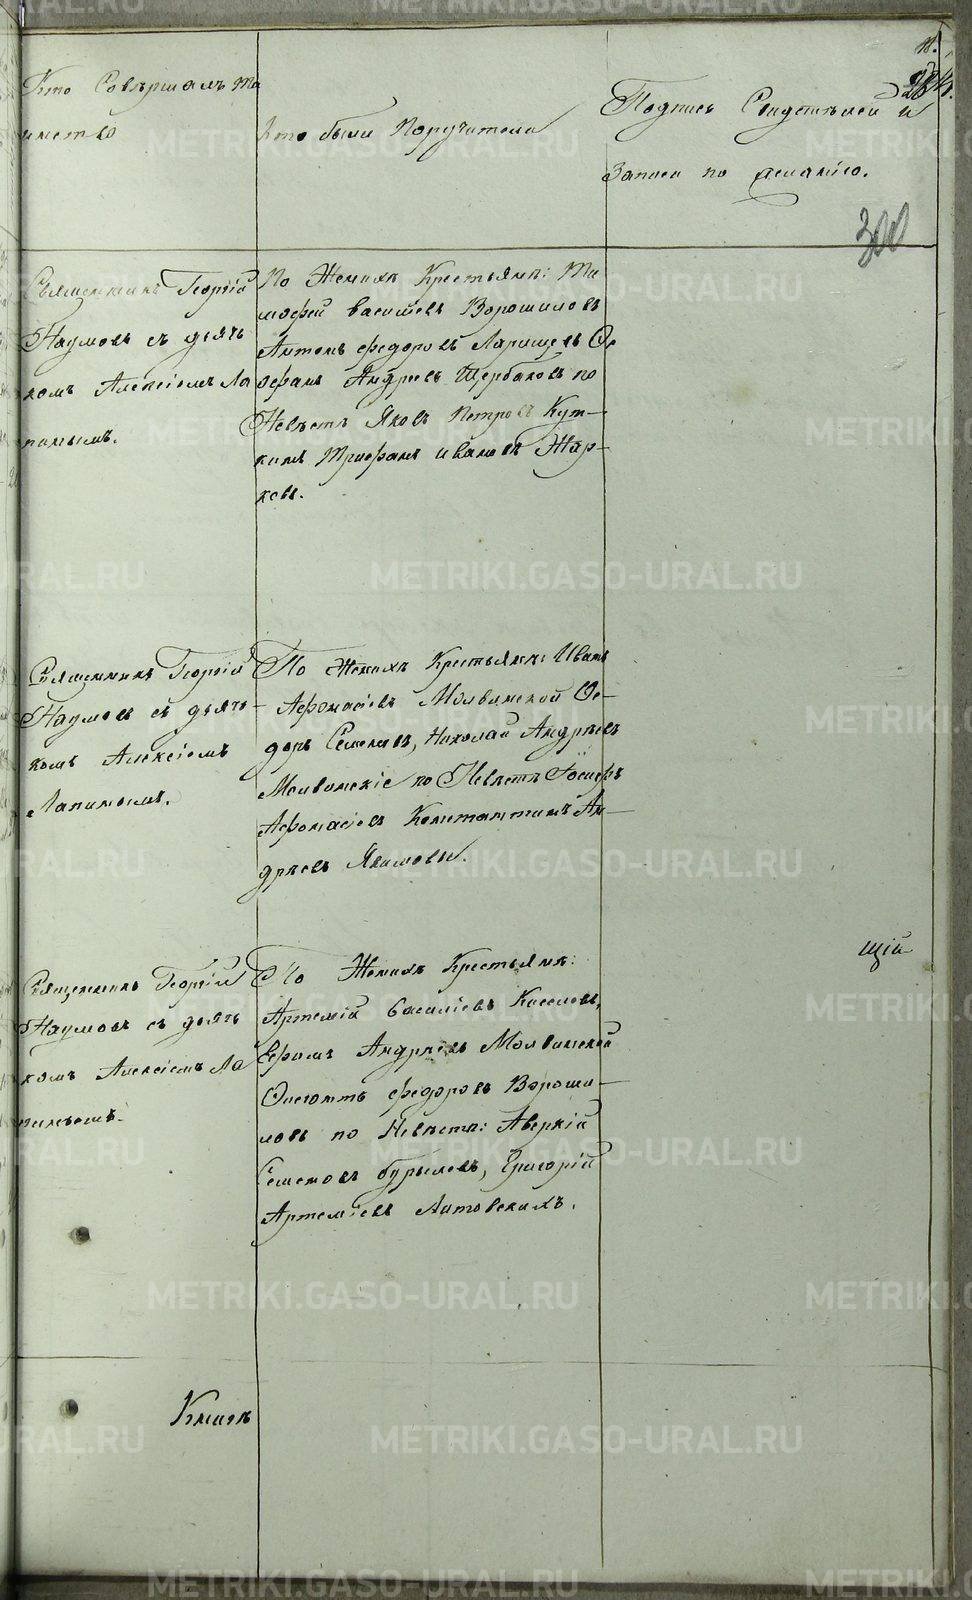 Кто Совѣршалъ Та
инство
Кто были Поручители
Подпись Свидетелей и
Записи по желанію.
300
Священникъ Георгій
Наумовъ съ дьяч
комъ Алексіемъ Ла
пинымъ.
По Женихѣ Крестьянѣ: Ти
мофей васильевъ Ворошиловъ
Антонъ федоровъ Ларищевъ
Андреевъ Щербаковъ по
Невѣстѣ Яковъ Петровъ Кут–
кинъ Трифанъ ивановъ Жар–
ковъ.
Священникъ Георгій
Наумовъ съ дьяч–
комъ Алексіемъ
Лапинымъ.
По Женихѣ Крестьянѣ: Иванъ
Афонасіевъ Молвинской Фе–
доръ Семеновъ, Николай Андреевъ
Молвинскіе по Невѣстѣ Іосифъ
Афонасіевъ Константинъ Ан–
дреевъ Якимовы.
щій
Священникъ Георгій
Наумовъ съ дьяч
комъ Алексіемъ Ла
пинымъ.
По Женихѣ Крестьянѣ:
Артемій Василіевъ Киселевъ,
Ефимъ Андреевъ Молвинской
федоровъ Вороши–
ловъ по Невѣстѣ: Аверкій
Семеновъ бурылевъ, Григорій
Артеміевъ Литовскихъ.
Книгъ
METRIKI.GASO-URAL.RU